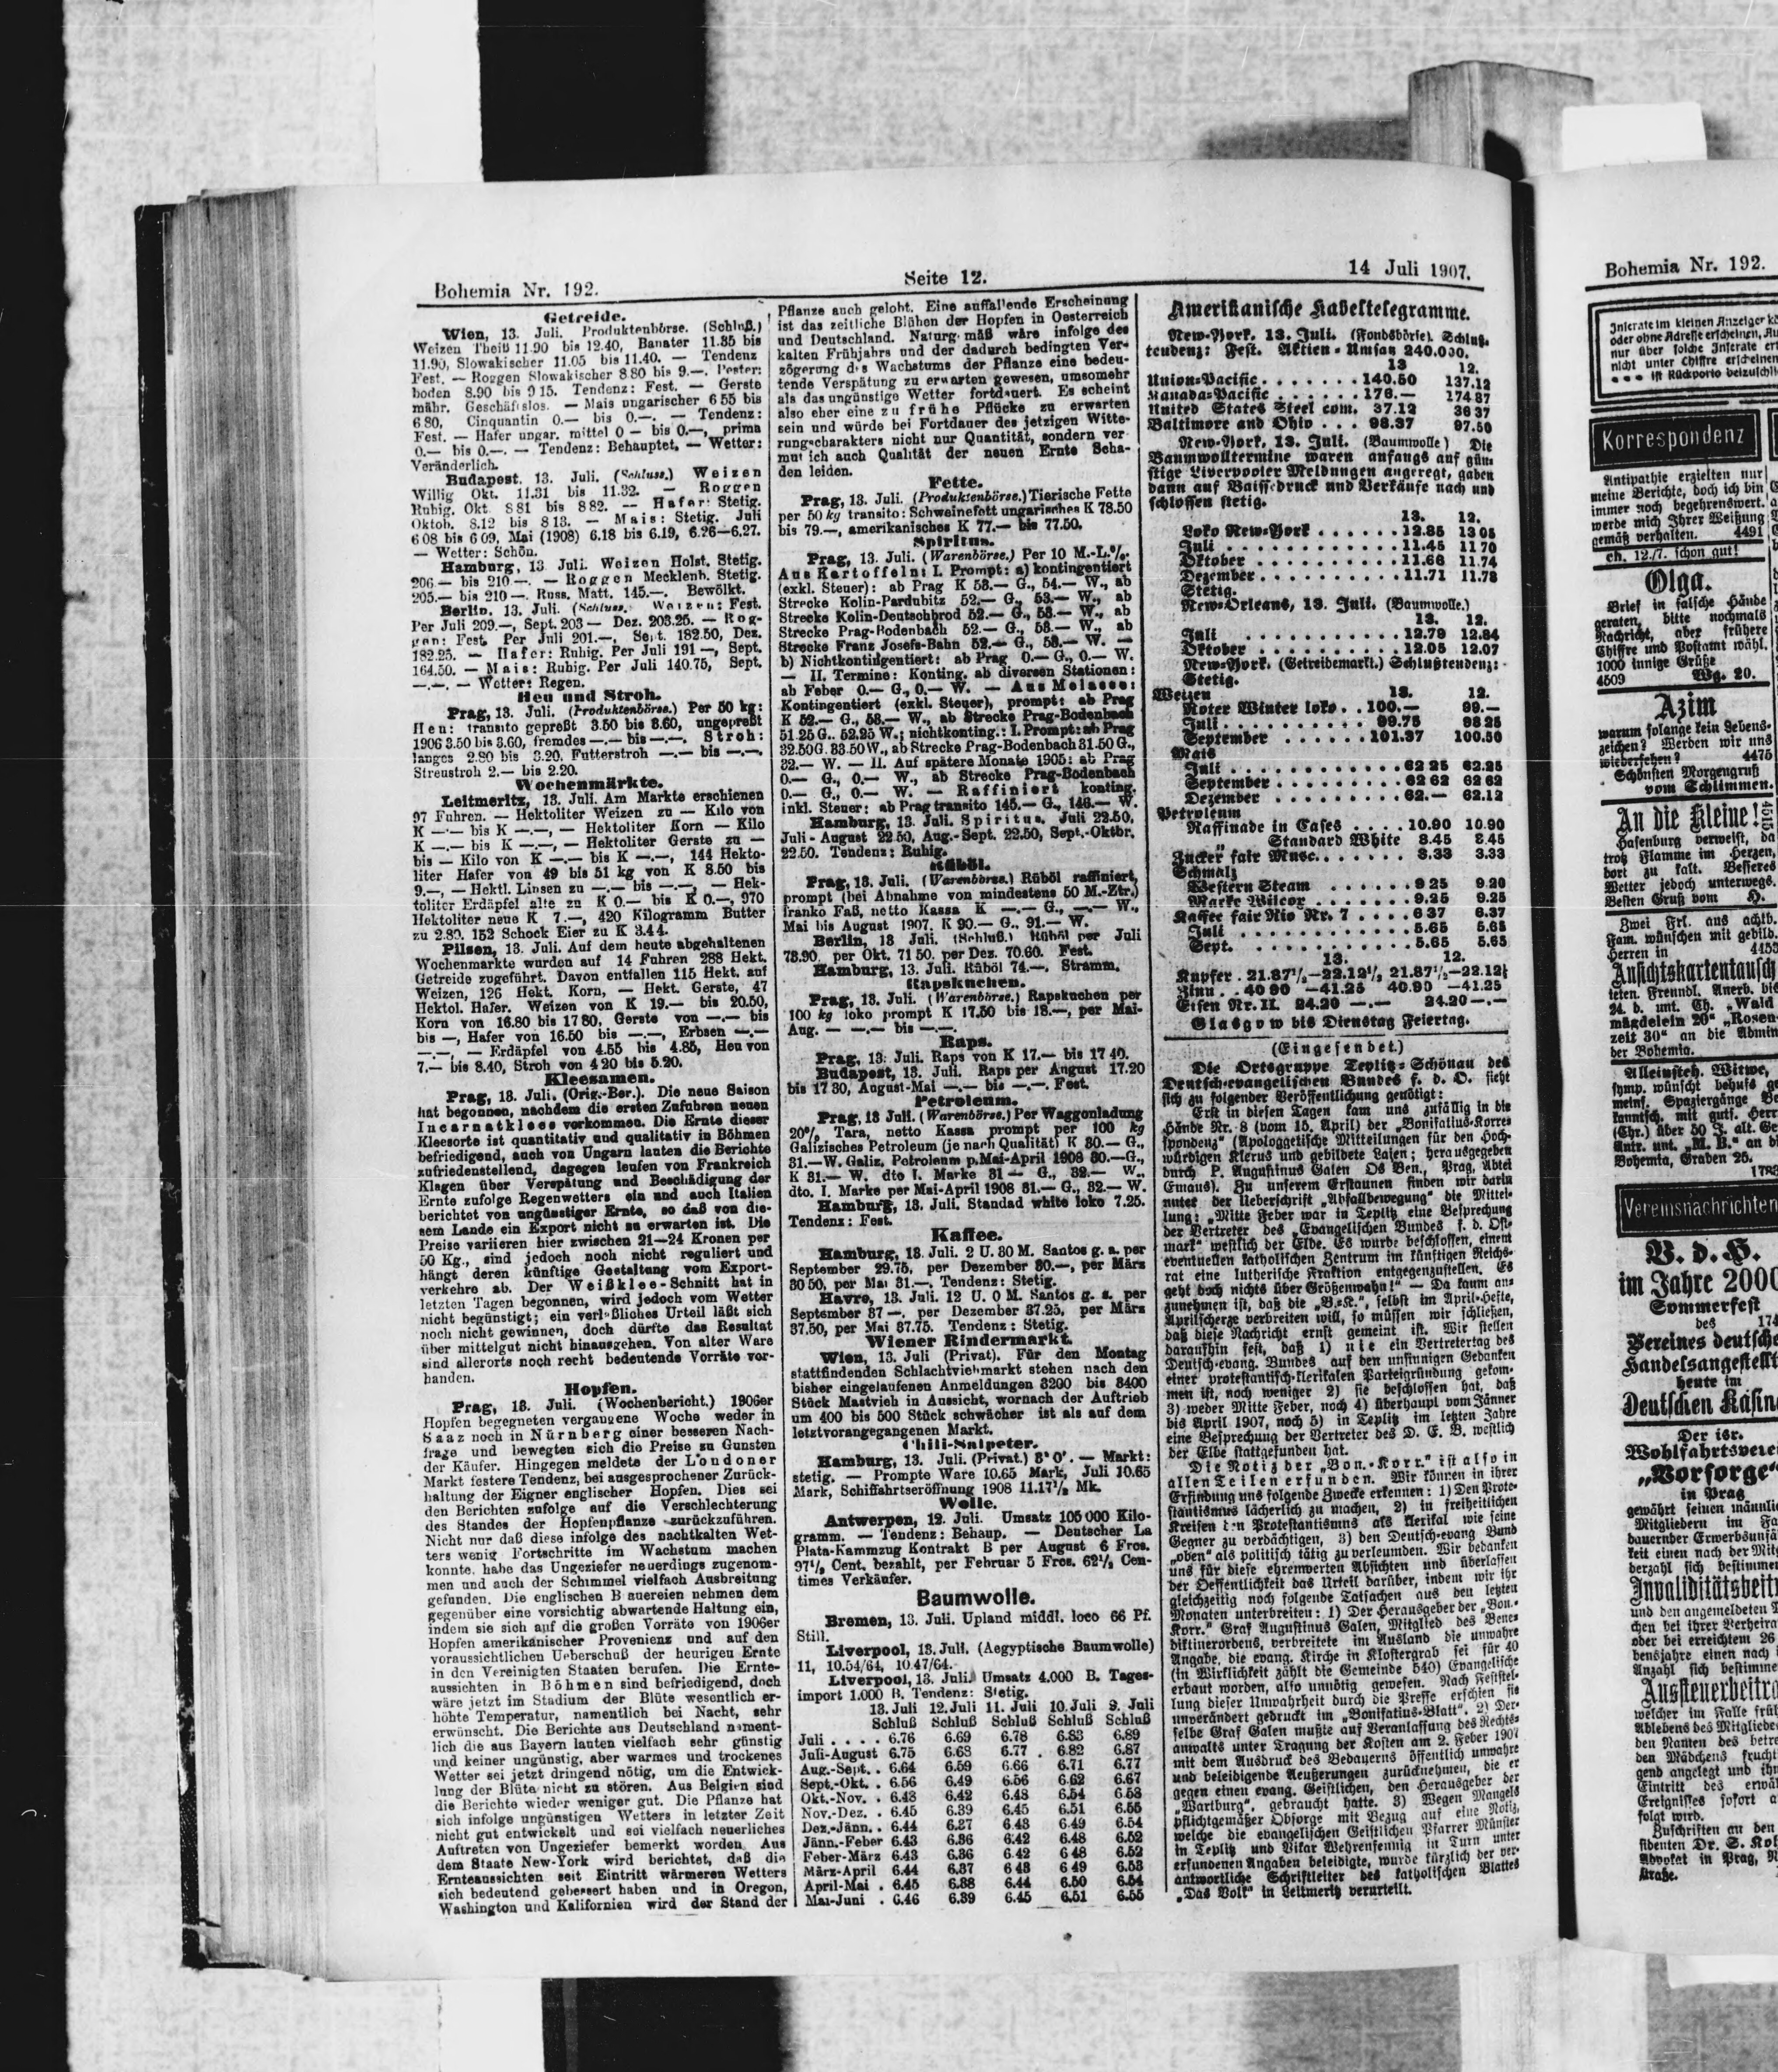 Bohemia Nr. 192.
Seite 12.
14 Juli 1907.
Getreide.
Wien, 13. Juli. Produktenbörse. (Schluß.)
Weizen Theiß 11.90 bis 12.40, Banater 11.85 bis
11.90, Slowakischer 11.05 bis 11.40. — Tendenz
Fest. — Roggen Slowakischer 8.80 bis 9.—. Pester:
boden 8.90 bis 9 15. Tendenz: Fest. — Gerste
mähr. Geschäftslos. — Mais ungarischer 6 55 bis
6 80, Cinquantin 0.— bis 0.—. — Tendenz:
Fest. — Hafer ungar. mittel 0 — bis 0.—, prima
0.— bis 0.—. — Tendenz: Behauptet. — Wetter:
Veränderlich.
Budapest, 13. Juli. (Schluss.) Weizen
Willig Okt. 11.31 bis 11.32. — Roggen
Ruhig. Okt 8 81 bis 8 82. — Hafer: Stetig.
Oktob. 8.12 bis 8 13. — Mais: Stetig. Juli
6 08 bis 6 09, Mai (1908) 6.18 bis 6.19, 6.26—6.27.
— Wetter: Schön.
Hamburg, 13 Juli. Weizen Holst. Stetig.
206 — bis 210 —. — Roggen Mecklenb. Stetig.
205.— bis 210 —. Russ. Matt. 145.—. Bewölkt.
Berlin, 13. Juli. (Schluss. Weizen: Fest.
Per Juli 209.—, Sept. 203 — Dez. 203.25. — Rog-
gen: Fest Per Juli 201.—, Sept. 182.50, Dez.
182.25. — Hafer: Ruhig. Per Juli 191 —, Sept.
164.50. — Mais: Ruhig. Per Juli 140.75, Sept.
—.—. — Wetter: Regen.
Heu und Stroh.
Prag, 13. Juli. (Produktenbörse.) Per 50 kg:
Heu: transito gepreßt 3.50 bis 3.60, ungepreßt
1906 3.50 bis 3.60, fremdes —.— bis —.—. Stroh:
langes 2.80 bis 3.20, Futterstroh —.— bis —.—.
Streustroh 2.— bis 2.20.
Wochenmärkte.
Leitmeritz, 13. Juli. Am Markte erschienen
97 Fuhren. — Hektoliter Weizen zu — Kilo von
K —.— bis K —.—, — Hektoliter Korn — Kilo
K —.— bis K —.—, — Hektoliter Gerste zu —
bis — Kilo von K —.— bis K —.—, 144 Hekto-
liter Hafer von 49 bis 51 kg von K 8.50 bis
9.—, — Hektl. Linsen zu —.— bis —.—, — Hek-
toliter Erdäpfel alte zu K 0.— bis K 0.—, 970
Hektoliter neue K 7.—, 420 Kilogramm Butter
zu 2.80. 152 Schock Eier zu K 3.44.
Pilsen, 13. Juli. Auf dem heute abgehaltenen
Wochenmarkte wurden auf 14 Fuhren 288 Hekt.
Getreide zugeführt. Davon entfallen 115 Hekt. auf
Weizen, 126 Hekt. Korn, — Hekt. Gerste, 47
Hektol. Hafer. Weizen von K 19.— bis 20.50,
Korn von 16.80 bis 17 80, Gerste von —.— bis
bis —, Hafer von 16.50 bis —.—, Erbsen —.—
—.—, — Erdäpfel von 4.55 bis 4.85, Heu von
7.— bis 8.40, Stroh von 4 20 bis 5.20.
Kleesamen.
Prag, 13. Juli. (Orig.-Ber.). Die neue Saison
hat begonnen, nachdem die ersten Zufuhren neuen
Incarnatklees vorkommen. Die Ernte dieser
Kleesorte ist quantitativ und qualitativ in Böhmen
befriedigend, auch von Ungarn lauten die Berichte
zufriedenstellend, dagegen laufen von Frankreich
Klagen über Verspätung und Beschädigung der
Ernte zufolge Regenwetters ein und auch Italien
berichtet von ungünstiger Ernte, so daß von die-
sem Lande ein Export nicht zu erwarten ist. Die
Preise variieren hier zwischen 21—24 Kronen per
50 Kg., sind jedoch noch nicht reguliert und
hängt deren künftige Gestaltung vom Export-
verkehre ab. Der Weißklee-Schnitt hat in
letzten Tagen begonnen, wird jedoch vom Wetter
nicht begünstigt; ein verläßliches Urteil läßt sich
noch nicht gewinnen, doch dürfte das Resultat
über mittelgut nicht hinausgehen. Von alter Ware
sind allerorts noch recht bedeutende Vorräte vor-
handen.
Hopfen.
Prag, 13. Juli. (Wochenbericht.) 1906er
Hopfen begegneten vergangene Woche weder in
Saaz noch in Nürnberg einer besseren Nach-
frage und bewegten sich die Preise zu Gunsten
der Käufer. Hingegen meldete der Londoner
Markt festere Tendenz, bei ausgesprochener Zurück-
haltung der Eigner englischer Hopfen. Dies sei
den Berichten zufolge auf die Verschlechterung
des Standes der Hopfenpflanze zurückzuführen.
Nicht nur daß diese infolge des nachtkalten Wet-
ters wenig Fortschritte im Wachstum machen
konnte, habe das Ungeziefer neuerdings zugenom-
men und auch der Schimmel vielfach Ausbreitung
gefunden. Die englischen Brauereien nehmen dem
gegenüber eine vorsichtig abwartende Haltung ein,
indem sie sich auf die großen Vorräte von 1906er
Hopfen amerikanischer Provenienz und auf den
voraussichtlichen Ueberschuß der heurigen Ernte
in den Vereinigten Staaten berufen. Die Ernte-
aussichten in Böhmen sind befriedigend, doch
wäre jetzt im Stadium der Blüte wesentlich er-
höhte Temperatur, namentlich bei Nacht, sehr
erwünscht. Die Berichte aus Deutschland nament-
lich die aus Bayern lauten vielfach sehr günstig
und keiner ungünstig, aber warmes und trockenes
Wetter sei jetzt dringend nötig, um die Entwick-
lung der Blüte nicht zu stören. Aus Belgien sind
die Berichte wieder weniger gut. Die Pflanze hat
sich infolge ungünstigen Wetters in letzter Zeit
nicht gut entwickelt und sei vielfach neuerliches
Auftreten von Ungeziefer bemerkt worden. Aus
dem Staate New-York wird berichtet, daß die
Ernteaussichten seit Eintritt wärmeren Wetters
sich bedeutend gebessert haben und in Oregon,
Washington und Kalifornien wird der Stand der
Pflanze auch gelobt. Eine auffallende Erscheinung
ist das zeitliche Blühen der Hopfen in Oesterreich
und Deutschland. Naturgemäß wäre infolge des
kalten Frühjahrs und der dadurch bedingten Ver-
zögerung des Wachstums der Pflanze eine bedeu-
tende Verspätung zu erwarten gewesen, umsomehr
als das ungünstige Wetter fortdauert. Es scheint
also eher eine zu frühe Pflücke zu erwarten
sein und würde bei Fortdauer des jetzigen Witte-
rungscharakters nicht nur Quantität, sondern ver
mutlich auch Qualität der neuen Ernte Scha-
den leiden.
Fette.
Prag, 13. Juli. (Produktenbörse.) Tierische Fette
per 50 kg transito: Schweinefett ungarisches K 78.50
bis 79.—, amerikanisches K 77.— bis 77.50.
Spiritus.
Prag, 13. Juli. (Warenbörse.) Per 10 M.-L.%.
Aus Kartoffeln: I. Prompt: a) kontingentiert
(exkl. Steuer): ab Prag K 53.— G., 54.— W., ab
Strecke Kolin-Pardubitz 52.— G., 53.— W., ab
Strecke Kolin-Deutschbrod 52.— G., 53.— W., ab
Strecke Prag-Bodenbach 52.— G., 53.— W., ab
Strecke Franz Josefs-Bahn 52.— G., 53.— W. —
b) Nichtkontingentiert: ab Prag 0.— G., 0.— W.
— II. Termine: Konting. ab diversen Stationen:
ab Feber 0.— G., 0.— W. — Aus Melasse:
Kontingentiert (exkl. Steuer), prompt: ab Prag
K 52.— G., 53.— W., ab Strecke Prag-Bodenbach
51 25 G.. 52.25 W.; nichtkonting.: I. Prompt: ab Prag
32.50 G. 33.50 W., ab Strecke Prag-Bodenbach 31.50 G.,
32.— W. — II. Auf spätere Monate 1905: ab Prag
0.— G., 0.— W., ab Strecke Prag-Bodenbach
0.— G., 0.— W. — Raffiniert konting.
inkl. Steuer: ab Prag transito 145.— G., 146.— W.
Hamburg, 13. Juli. Spiritus. Juli 22.50,
Juli - August 22.50, Aug.-Sept. 22.50, Sept.-Oktbr.
22.50. Tendenz: Ruhig.
Rüböl.
Prag, 13. Juli. (Warenbörse.) Rüböl raffiniert,
prompt (bei Abnahme von mindestens 50 M.-Ztr.)
franko Faß, netto Kassa K —.— G., —.— W.,
Mai bis August 1907. K 90.— G., 91.— W.
Berlin, 13 Juli. (Schluß.) Rüböl per Juli
78.90. per Okt. 71 50. per Dez. 70.60. Fest.
Hamburg, 13. Juli. Rüböl 74.—. Stramm.
Rapskuchen.
Prag, 13. Juli. (Warenbörse.) Rapskuchen per
100 kg loko prompt K 17.50 bis 18.—, per Mai-
Aug. — —.— bis —.—.
Raps.
Prag, 13. Juli. Raps von K 17.— bis 17 40.
Budapest, 13. Juli. Raps per August 17.20
bis 17 30, August-Mai —.— bis —.—. Fest.
Petroleum.
Prag, 13 Juli. (Warenbörse.) Per Waggonladung
20% Tara, netto Kassa prompt per 100 kg
Galizisches Petroleum (je nach Qualität) K 30.— G.,
31.—W. Galiz. Petroleum p. Mai-April 1908 30.—G.,
K 31.— W. dto I. Marke 31 — G., 32.— W.,
dto. I. Marke per Mai-April 1908 31.— G., 32.— W.
Hamburg, 13. Juli. Standad white loko 7.25.
Tendenz: Fest.
Kaffee.
Hamburg, 13. Juli. 2 U. 30 M. Santos g. a. per
September 29.75, per Dezember 30.—, per März
30 50, per Mai 31.—. Tendenz: Stetig.
Havre, 13. Juli. 12 U. 0 M. Santos g. a. per
September 37 —, per Dezember 37.25, per März
37.50, per Mai 37.75. Tendenz: Stetig.
Wiener Rindermarkt.
Wien, 13. Juli (Privat). Für den Montag
stattfindenden Schlachtviehmarkt stehen nach den
bisher eingelaufenen Anmeldungen 3200 bis 3400
Stück Mastvieh in Aussicht, wornach der Auftrieb
um 400 bis 500 Stück schwächer ist als auf dem
letztvorangegangenen Markt.
Chili-Salpeter.
Hamburg, 13. Juli. (Privat.) 3°0'. — Markt:
stetig. — Prompte Ware 10.65 Mark, Juli 10.65
Mark, Schiffahrtseröffnung 1908 11.17½ Mk.
Wolle.
Antwerpen, 12. Juli. Umsatz 105 000 Kilo-
gramm. — Tendenz: Behaup. — Deutscher La
Plata-Kammzug Kontrakt B per August 6 Frcs.
97½ Cent. bezahlt, per Februar 5 Frcs. 62½ Cen-
times Verkäufer.
Baumwolle.
Bremen, 13. Juli. Upland middl. loco 66 Pf.
Still.
Liverpool, 13. Juli. (Aegyptische Baumwolle)
11, 10.54/64, 10.47/64.
Liverpool, 13. Juli. Umsatz 4.000 B. Tages-
import 1.000 B. Tendenz: Stetig.
13. Juli 12. Juli 11. Juli 10. Juli 9. Juli
Schluß Schluß Schluß Schluß Schluß
Juli . . . . 6.76 6.69 6.78 6.83 6.89
Juli-August 6.75 6.68 6.77 . 6.82 6.87
Aug.-Sept. . 6.64 6.59 6.66 6.71 6.77
Sept.-Okt. . 6.56 6.49 6.56 6 62 6.67
Okt.-Nov. . 6.48 6.42 6.48 6.54 6 58
Nov.-Dez. . 6.45 6.39 6.45 6.51 6.55
Dez.-Jänn. . 6.44 6.27 6 43 6 49 6.54
Jänn.-Feber 6.43 6.36 6.42 6.48 6.52
Feber-März 6.43 6.36 6.42 6 48 6.52
März-April 6.44 6.37 6 43 6 49 6.53
April-Mai . 6.45 6.38 6.44 6.50 6.54
Mai-Juni . 6.46 6.39 6.45 6.51 6.55
Amerikanische Kabeltelegramme.
New-York. 13. Juli. (Fondsbörse). Schluß-
tendenz: Fest. Aktien-Umsatz 240.000.
13 12.
Union-Pacific . . . . . . . 140.50 137.12
Kanada-Pacific . . . . . . 176.— 174 87
United States Steel com. 37.12 36 37
Baltimore and Ohio . . . 98.37 97.50
New-York, 13. Juli. (Baumwolle) Die
Baumwolltermine waren anfangs auf gün-
stige Liverpooler Meldungen angeregt, gaben
dann auf Baissedruck und Verkäufe nach und
schlossen stetig.
13. 12.
Loko New-York . . . . . . 12.85 13 05
Juli . . . . . . . . . . . 11.45 11 70
Oktober . . . . . . . . . 11.66 11.74
Dezember . . . . . . . . 11.71 11.78
Stetig.
New-Orleans, 13. Juli. (Baumwolle.)
13. 12.
Juli . . . . . . . . . . 12.79 12.84
Oktober . . . . . . . . . 12.05 12.07
New-York. (Getreidemarkt.) Schlußtendenz:
Stetig.
Weizen 13. 12.
Roter Winter loko . . 100.— 99.—
Juli . . . . . . . . . . 99.75 98 25
September . . . . . . 101.37 100.50
Mais
Juli . . . . . . . . . . . 62 25 62.25
September . . . . . . . . 62 62 62 62
Dezember . . . . . . . . 62.— 62.12
Petroleum
Raffinade in Cases . . . . 10.90 10.90
„ Standard White 8.45 8.45
Zucker fair Musc. . . . . . . 3.33 3.33
Schmalz
Western Steam . . . . . . 9 25 9.20
Marke Wilcox . . . . . . . 9.25 9.25
Kaffee fair Rio Nr. 7 . . . . 6 37 6.37
Juli . . . . . . . . . . . 5.65 5.65
Sept. . . . . . . . . . . 5.65 5.65
13. 12.
Kupfer . 21.87½—22.12½ 21.87½—22.12½
Zinn . . 40 90 —41.25 40.90 —41.25
Eisen Nr. II. 24.20 —.— 24.20 —.—
Glasgow bis Dienstag Feiertag.
(Eingesendet.)
Die Ortsgruppe Teplitz-Schönau des
Deutsch-evangelischen Bundes f. d. O. sieht
sich zu folgender Veröffentlichung genötigt:
Erst in diesen Tagen kam uns zufällig in die
Hände Nr. 8 (vom 15. April) der „Bonifatius-Korre-
spondenz“ (Apologgetische Mitteilungen für den Hoch-
würdigen Klerus und gebildete Laien; herausgegeben
durch P. Augustinus Galen Os Ben., Prag, Abtei
Emaus). Zu unserem Erstaunen finden wir darin
unter der Ueberschrift „Abfallbewegung“ die Mittei-
lung: „Mitte Feber war in Teplitz eine Besprechung
der Vertreter des „Evangelischen Bundes f. d. Ost-
mark“ westlich der Elbe. Es wurde beschlossen, einem
eventuellen katholischen Zentrum im künftigen Reichs-
rat eine lutherische Fraktion entgegenzustellen. Es
geht doch nichts über Größenwahn!“ — Da kaum an-
zunehmen ist, daß die „B.-K.“, selbst im April-Hefte,
Aprilscherze verbreiten will, so müssen wir schließen,
daß diese Nachricht ernst gemeint ist. Wir stellen
daraufhin fest, daß 1) nie ein Vertretertag des
Deutsch-evang. Bundes auf den unsinnigen Gedanken
einer protestantisch-klerikalen Parteigründung gekom-
men ist, noch weniger 2) sie beschlossen hat, daß
3) weder Mitte Feber, noch 4) überhaupt vom Jänner
bis April 1907, noch 5) in Teplitz im letzten Jahre
eine Besprechung der Vertreter des D. E. B. westlich
der Elbe stattgefunden hat.
Die Notiz der „Bon.-Korr.“ ist also in
allen Teilen erfunden. Wir können in ihrer
Erfindung uns folgende Zwecke erkennen: 1) Den Prote-
stantismus lächerlich zu machen, 2) in freiheitlichen
Kreisen den Protestantismus als klerikal wie seine
Gegner zu verdächtigen, 3) den Deutsch-evang Bund
„oben“ als politisch tätig zu verleumden. Wir bedanken
uns für diese ehrenwerten Absichten und überlassen
der Oeffentlichkeit das Urteil darüber, indem wir ihr
gleichzeitig noch folgende Tatsachen aus den letzten
Monaten unterbreiten: 1) Der Herausgeber der „Bon.-
Korr.“ Graf Augustinus Galen, Mitglied des Bene-
diktinerordens, verbreitete im Ausland die unwahre
Angabe, die evang. Kirche in Klostergrab sei für 40
(in Wirklichkeit zählt die Gemeinde 540) Evangelische
erbaut worden, also unnötig gewesen. Nach Feststel-
lung dieser Unwahrheit durch die Presse erschien sie
unverändert gedruckt im „Bonifatius-Blatt“. 2) Der-
selbe Graf Galen mußte auf Veranlassung des Rechts-
anwalts unter Tragung der Kosten am 2. Feber 1907
mit dem Ausdruck des Bedauerns öffentlich unwahre
und beleidigende Aeußerungen zurücknehmen, die er
gegen einen evang. Geistlichen, den Herausgeber der
„Wartburg“, gebraucht hatte. 3) Wegen Mangels
pflichtgemäßer Obsorge mit Bezug auf eine Notiz,
welche die evangelischen Geistlichen Pfarrer Münster
in Teplitz und Vikar Wehrenfennig in Turn unter
erfundenen Angaben beleidigte, wurde kürzlich der ver-
antwortliche Schriftleiter des katholischen Blattes
„Das Volk“ in Leitmeritz verurteilt.
Bohemia Nr. 192.
Inserate im kleinen Anzeiger
oder ohne Adresse erscheinen,
nur über solche Inserate
nicht unter Chiffre erscheinen
• • • ist Rückporto
Korrespondenz
Antipathie erzielten nur
meine Berichte, doch ich bin
immer noch begehrenswert.
werde mich Ihrer Weißung
gemäß verhalten. 4491
ch. 12./7. schon gut!
Olga.
Brief in falsche Hände
geraten, bitte nochmals
Nachricht, aber frühere
Chiffre und Postamt wähl.
1000 innige Grüße
4509 Wg. 20.
Azim
warum solange kein Lebens-
zeichen? Werden wir uns
wiedersehen? 4475
Schönsten Morgengruß
vom Schlimmen.
An die Kleine!
Hasenburg verweist, da
trotz Flamme im Herzen,
dort zu kalt. Besseres
Wetter jedoch unterwegs.
Besten Gruß vom H.
Zwei Frl. aus achtb.
Fam. wünschen mit gebild.
Herren in
Ansichtskartentausch
treten. Freundl. Anerb. bis
24. d. unt. Ch. „Wald
mägdelein 20“ „Rosen
zeit 30“ an die Admin
der Bohemia.
Alleinsteh. Witwe,
symp. wünscht behufs
meins. Spaziergänge
kanntsch. mit guts. Herr
(Chr.) über 50 J. alt.
Antr. unt. „M. B.“ an
Bohemia, Graben 25.
Vereinsnachrichten
V. d. H.
im Jahre 2000
Sommerfest
des
Vereines
heute im
Deutschen
Der isr.
„Vorsorge“
in Prag
gewährt seinen
Mitgliedern im
dauernder
keit einen nach der
derzahl sich
und den angemeldeten
chen bei ihrer
oder bei erreichtem 26
bensjahre einen nach
Anzahl sich
welcher im Falle
Ablebens des
den Namen des
den Mädchens
gend angelegt und
Eintritt des
Ereignisses sofort
folgt wird.
Zuschriften an den
Dr. S.
Advokat in Prag,